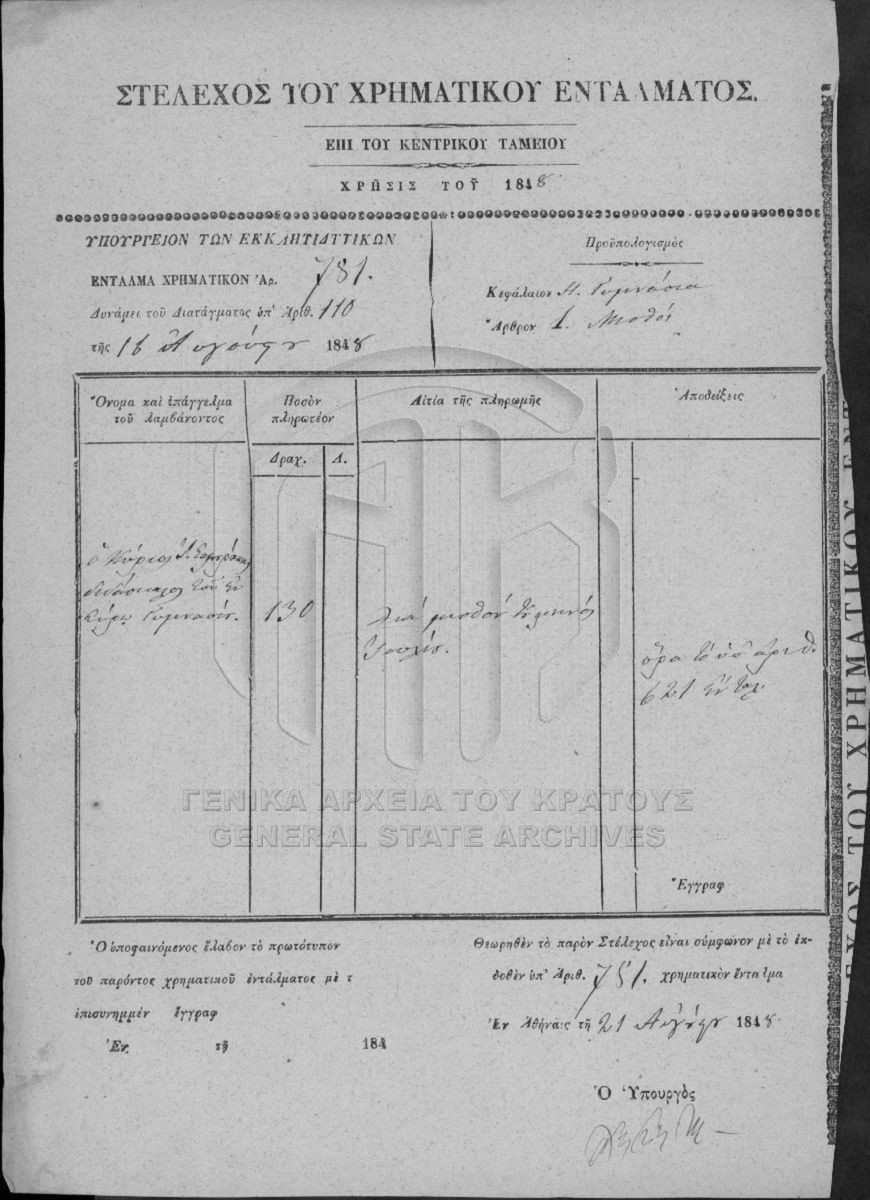 ΣΤΕΛΕΧΟΣ ΤΟΥ ΧΡΗΜΑΤΙΚΟΥ ΕΝΤΑΛΜΑΤΟΣ.
ΕΠΙ ΤΟΥ ΚΕΝΤΡΙΚΟΥ ΤΑΜΕΙΟΥ
ΧΡΗΣΙΣ ΤΟΥ 1848
ΥΠΟΥΡΓΕΙΟΝ ΤΩΝ ΕΚΚΛΗΣΙΑΣΤΙΚΩΝ
ΕΝΤΑΛΜΑ ΧΡΗΜΑΤΙΚΟΝ Ἀρ. 781.
Δυνάμει τοῦ Διατάγματος ὑπ' Ἀριθ. 110
τῆς 16 Αὐγούστου 1848
Προϋπολογισμὸς
Κεφάλαιον Η. Γυμνάσια
Ἄρθρον 1. Μισθοί
Ὄνομα καὶ ἐπάγγελμα
τοῦ λαμβάνοντος
Ποσὸν
πληρωτέον
Αἰτία τῆς πληρωμῆς
Ἀποδείξεις
Δραχ. Λ.
ὁ Κύριος
διδάσκαλος τοῦ ἐν
Σύρῳ Γυμνασίου.
130
διὰ μισθόν του μηνός
Ἰουλίου.
ὅρα τὸ ὑπ' ἀριθ.
621 ἔνταλ.
Ἔγγραφ
ΓΕΝΙΚΑ ΑΡΧΕΙΑ ΤΟΥ ΚΡΑΤΟΥΣ
GENERAL STATE ARCHIVES
Ὁ ὑποφαινόμενος ἔλαβον τὸ πρωτότυπον
τοῦ παρόντος χρηματικοῦ ἐντάλματος μὲ τ
ἐπισυνημμέν ἔγγραφ
Ἐν τῇ 184
Θεωρηθὲν τὸ παρὸν Στέλεχος εἶναι σύμφωνον μὲ τὸ ἐκ-
δοθὲν ὑπ' Ἀριθ. 781. χρηματικὸν ἔνταλμα
Ἐν Ἀθήναις τῇ 21 Αὐγούστου 1848.
Ὁ Ὑπουργὸς
ΕΧΟΣ ΤΟΥ ΧΡΗΜΑΤΙΚΟΥ ΕΝΤ